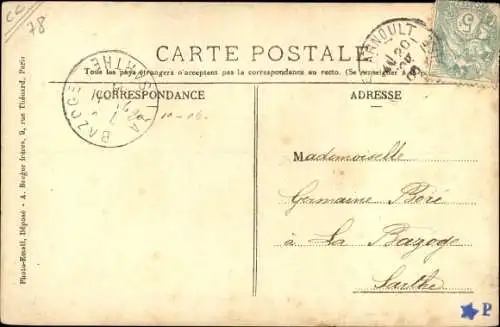 CC
78
CARTE POSTALE
Tous les pays étrangers n'acceptent pas la correspondance au recto. (Se renseigner à
CORRESPONDANCE
ADRESSE
ARNOULT
LA BAZOGE
SARTHE
10-06
Mademoiselle
Germaine Boré
à La Bazoge
Sarthe
Photo-Email, Déposé - A. Bergur frères, 9, rue Thénard, Paris
5
P